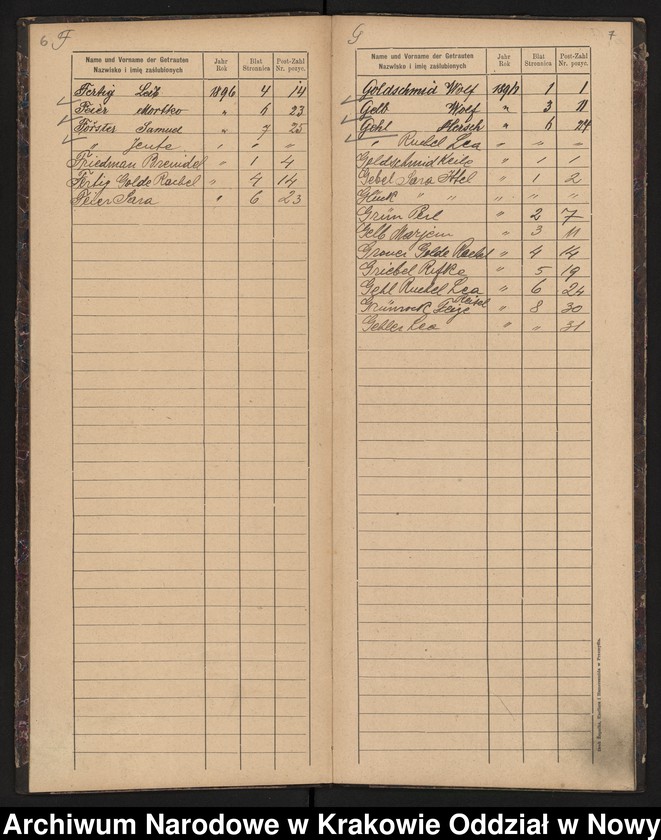 6 F
Name und Vorname der Getrauten Jahr Blat Post-Zahl
Nazwisko i imię zaślubionych Rok Stronnica Nr. pozyc.
Fertig Leib 1896 4 14
Feier Mortko " 6 23
Förster Samuel " 7 25
" Jente " " "
Friedman Breindel " 1 4
Fertig Golde Rachel " 4 14
Feier Sara " 6 23
G 7
Name und Vorname der Getrauten Jahr Blat Post-Zahl
Nazwisko i imię zaślubionych Rok Stronnica Nr. pozyc.
Goldschmid Wolf 1 1
Gelb Wolf " 3 11
Gehl Hersch " 6 24
" Ruchel Lea " " "
Goldschmid " 1 1
Gebel Sara " 1 2
Glück " " " " "
Grün Perl " 2 7
Gelb Marjem " 3 11
Golde Rachel " 4 14
Griebel Rifke " 5 19
Gehl Ruchel Lea " 6 24
Feige Reisel " 8 30
Lea " " 31
Archiwum Narodowe w Krakowie Oddział w Nowy